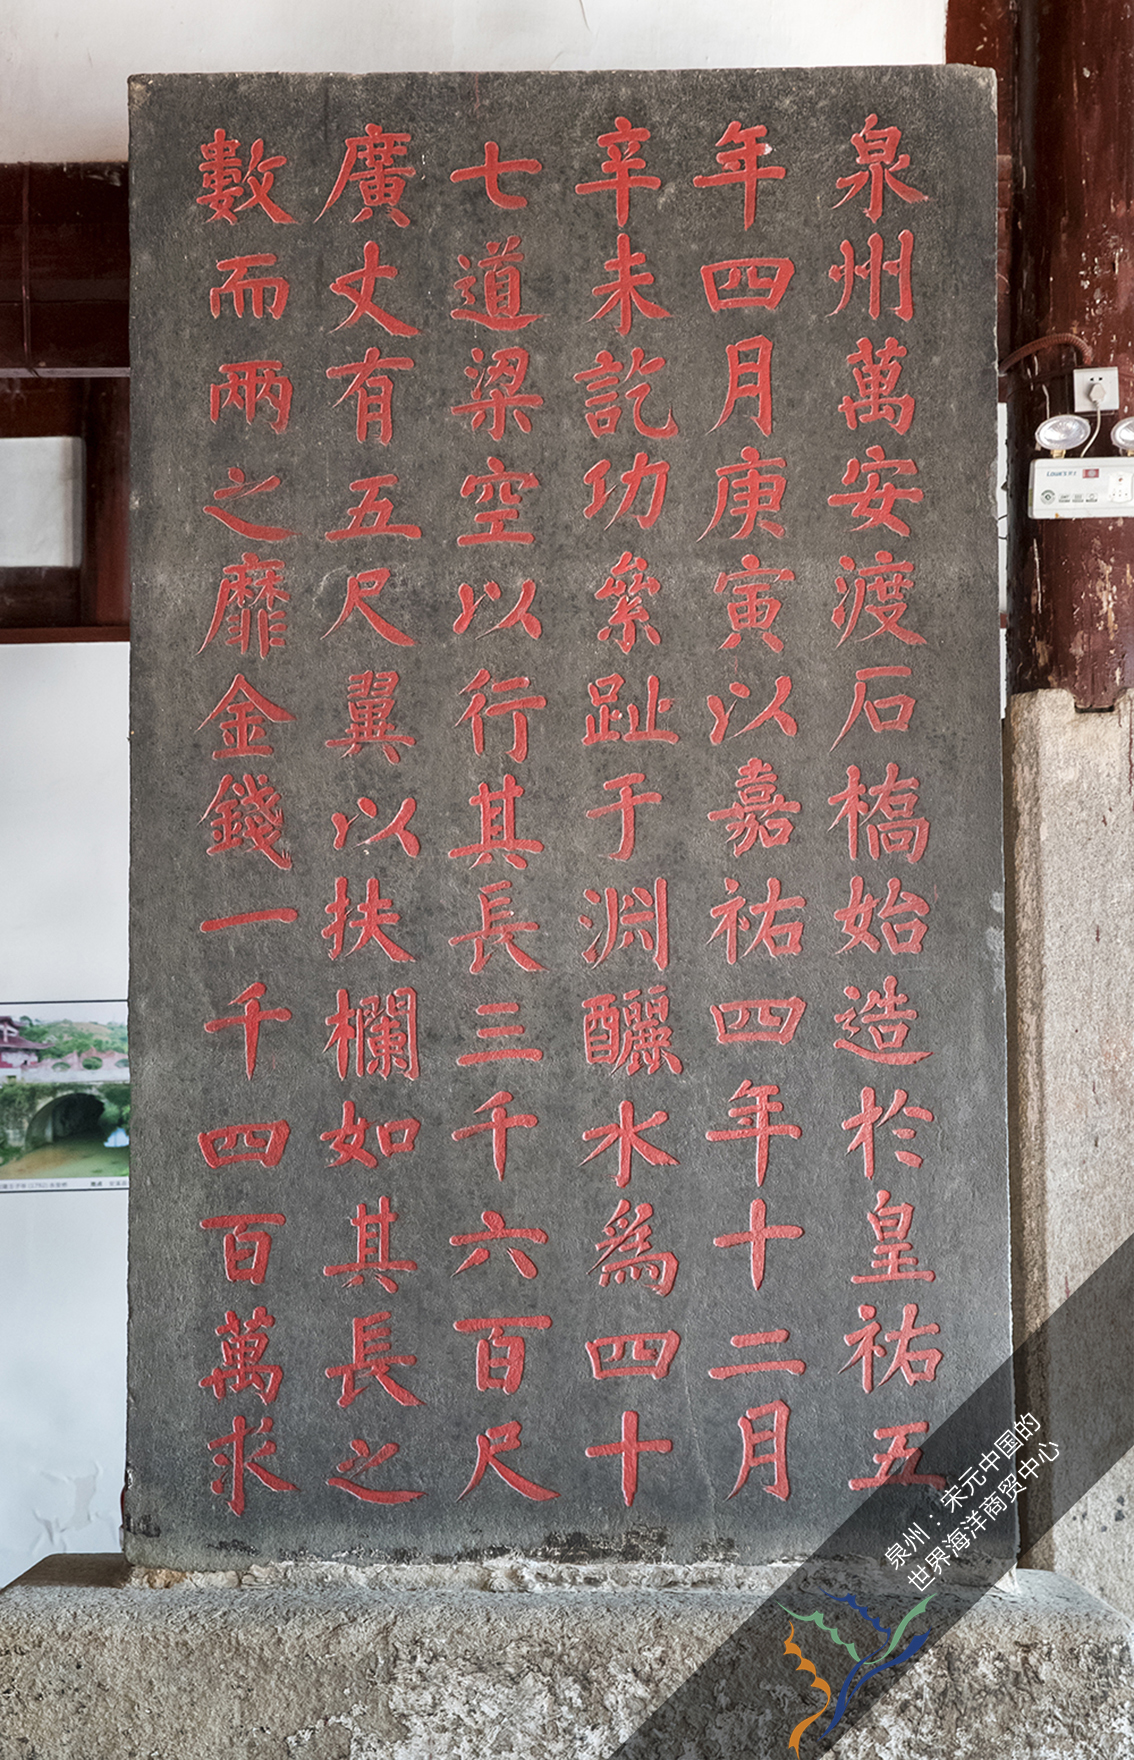 泉州萬安渡石橋始造於皇祐五
年四月庚寅以嘉祐四年十二月
辛未訖功絫趾于渊釃水爲四十
七道梁空以行其長三千六百尺
廣丈有五尺翼以扶欄如其長之
數而兩之靡金錢一千四百萬求
泉州：宋元中国的
世界海洋商贸中心